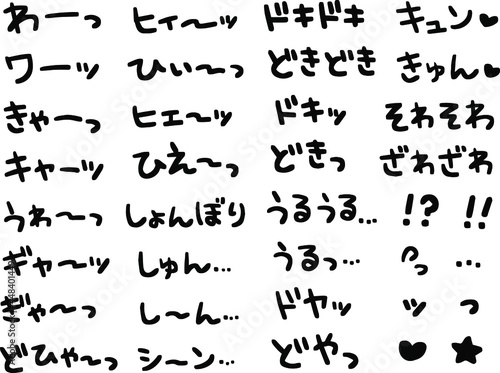 わーっ ヒィ〜ッ ドキドキ キュン♥
ワーッ ひぃ〜っ どきどき きゅん♥
きゃーっ ヒェ〜ッ ドキッ そわそわ
キャーッ ひえ〜っ どきっ ざわざわ
うわ〜っ しょんぼり うるうる… !? !!
ギャ〜ッ しゅん… うるっ… っ …
ぎゃ〜っ し〜ん… ドヤッ ッ っ
どひゃ〜っ シーン… どやっ ♥ ★
Adobe Stock